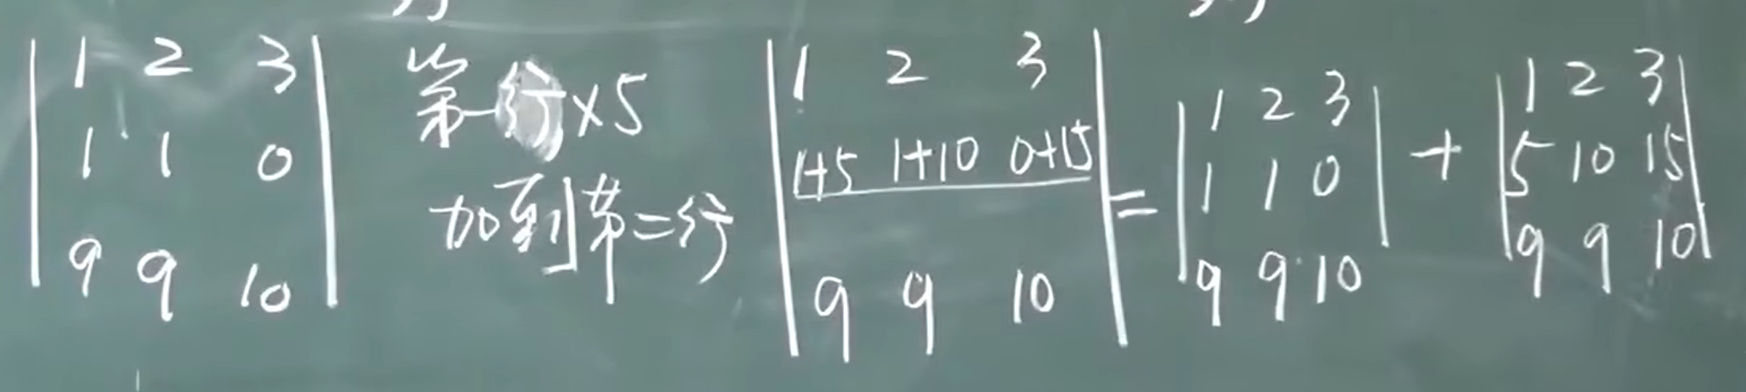 | 1 2 3 |
| 1 1 0 |
| 9 9 10 |
第一行×5
加到第二行
| 1 2 3 |
| 1+5 1+10 0+15 |
| 9 9 10 |
=
| 1 2 3 |
| 1 1 0 |
| 9 9 10 |
+
| 1 2 3 |
| 5 10 15 |
| 9 9 10 |